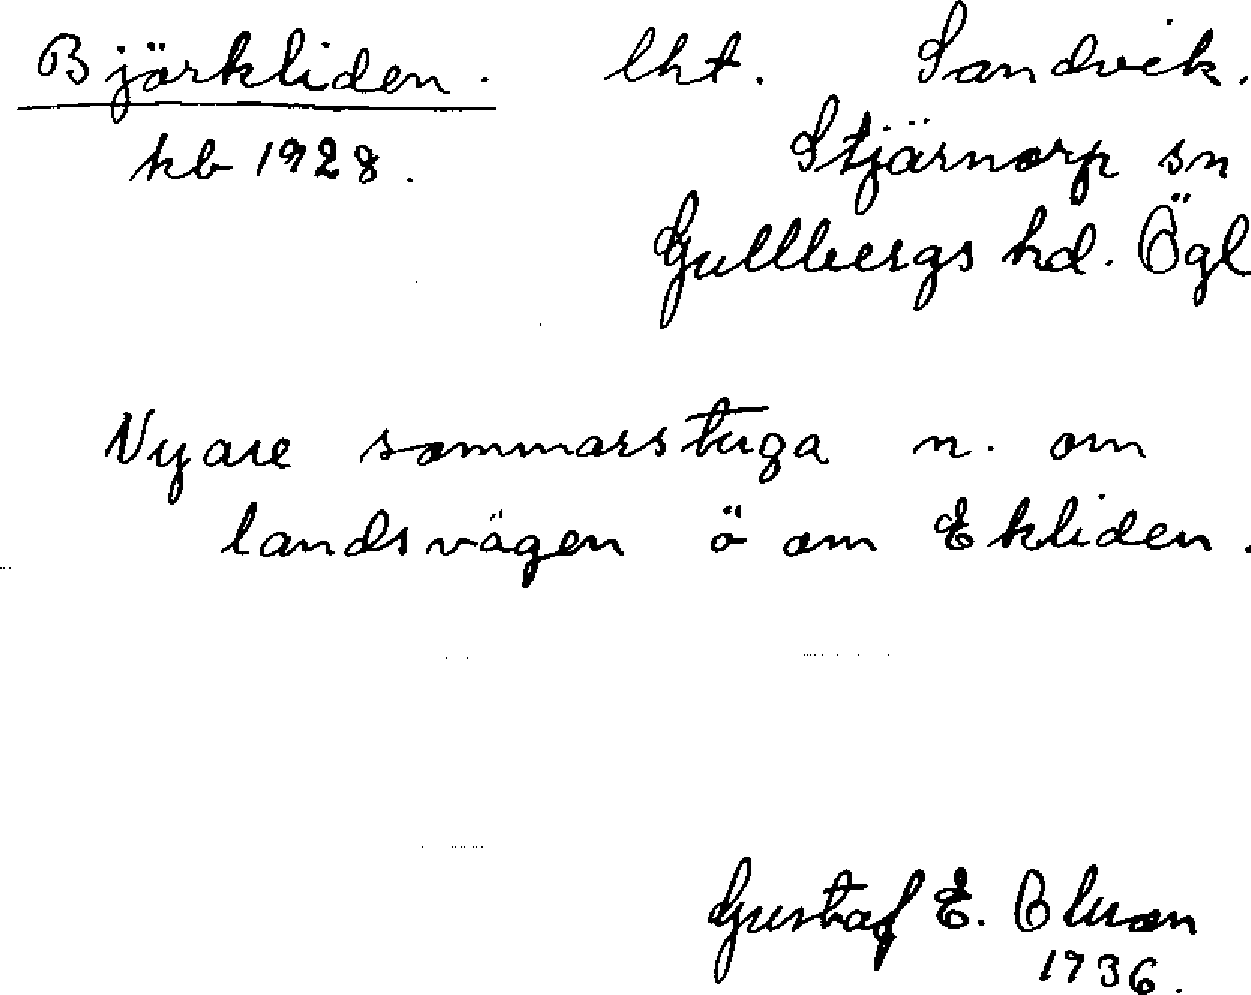 Björkliden. lht. Sandvik.
kb 1928. Stjärnorp sn
Gullbergs hd. Ögl
Nyare sommarstuga n. om
landsvägen ö om Ekliden.
Gustaf E. Olson
1936.